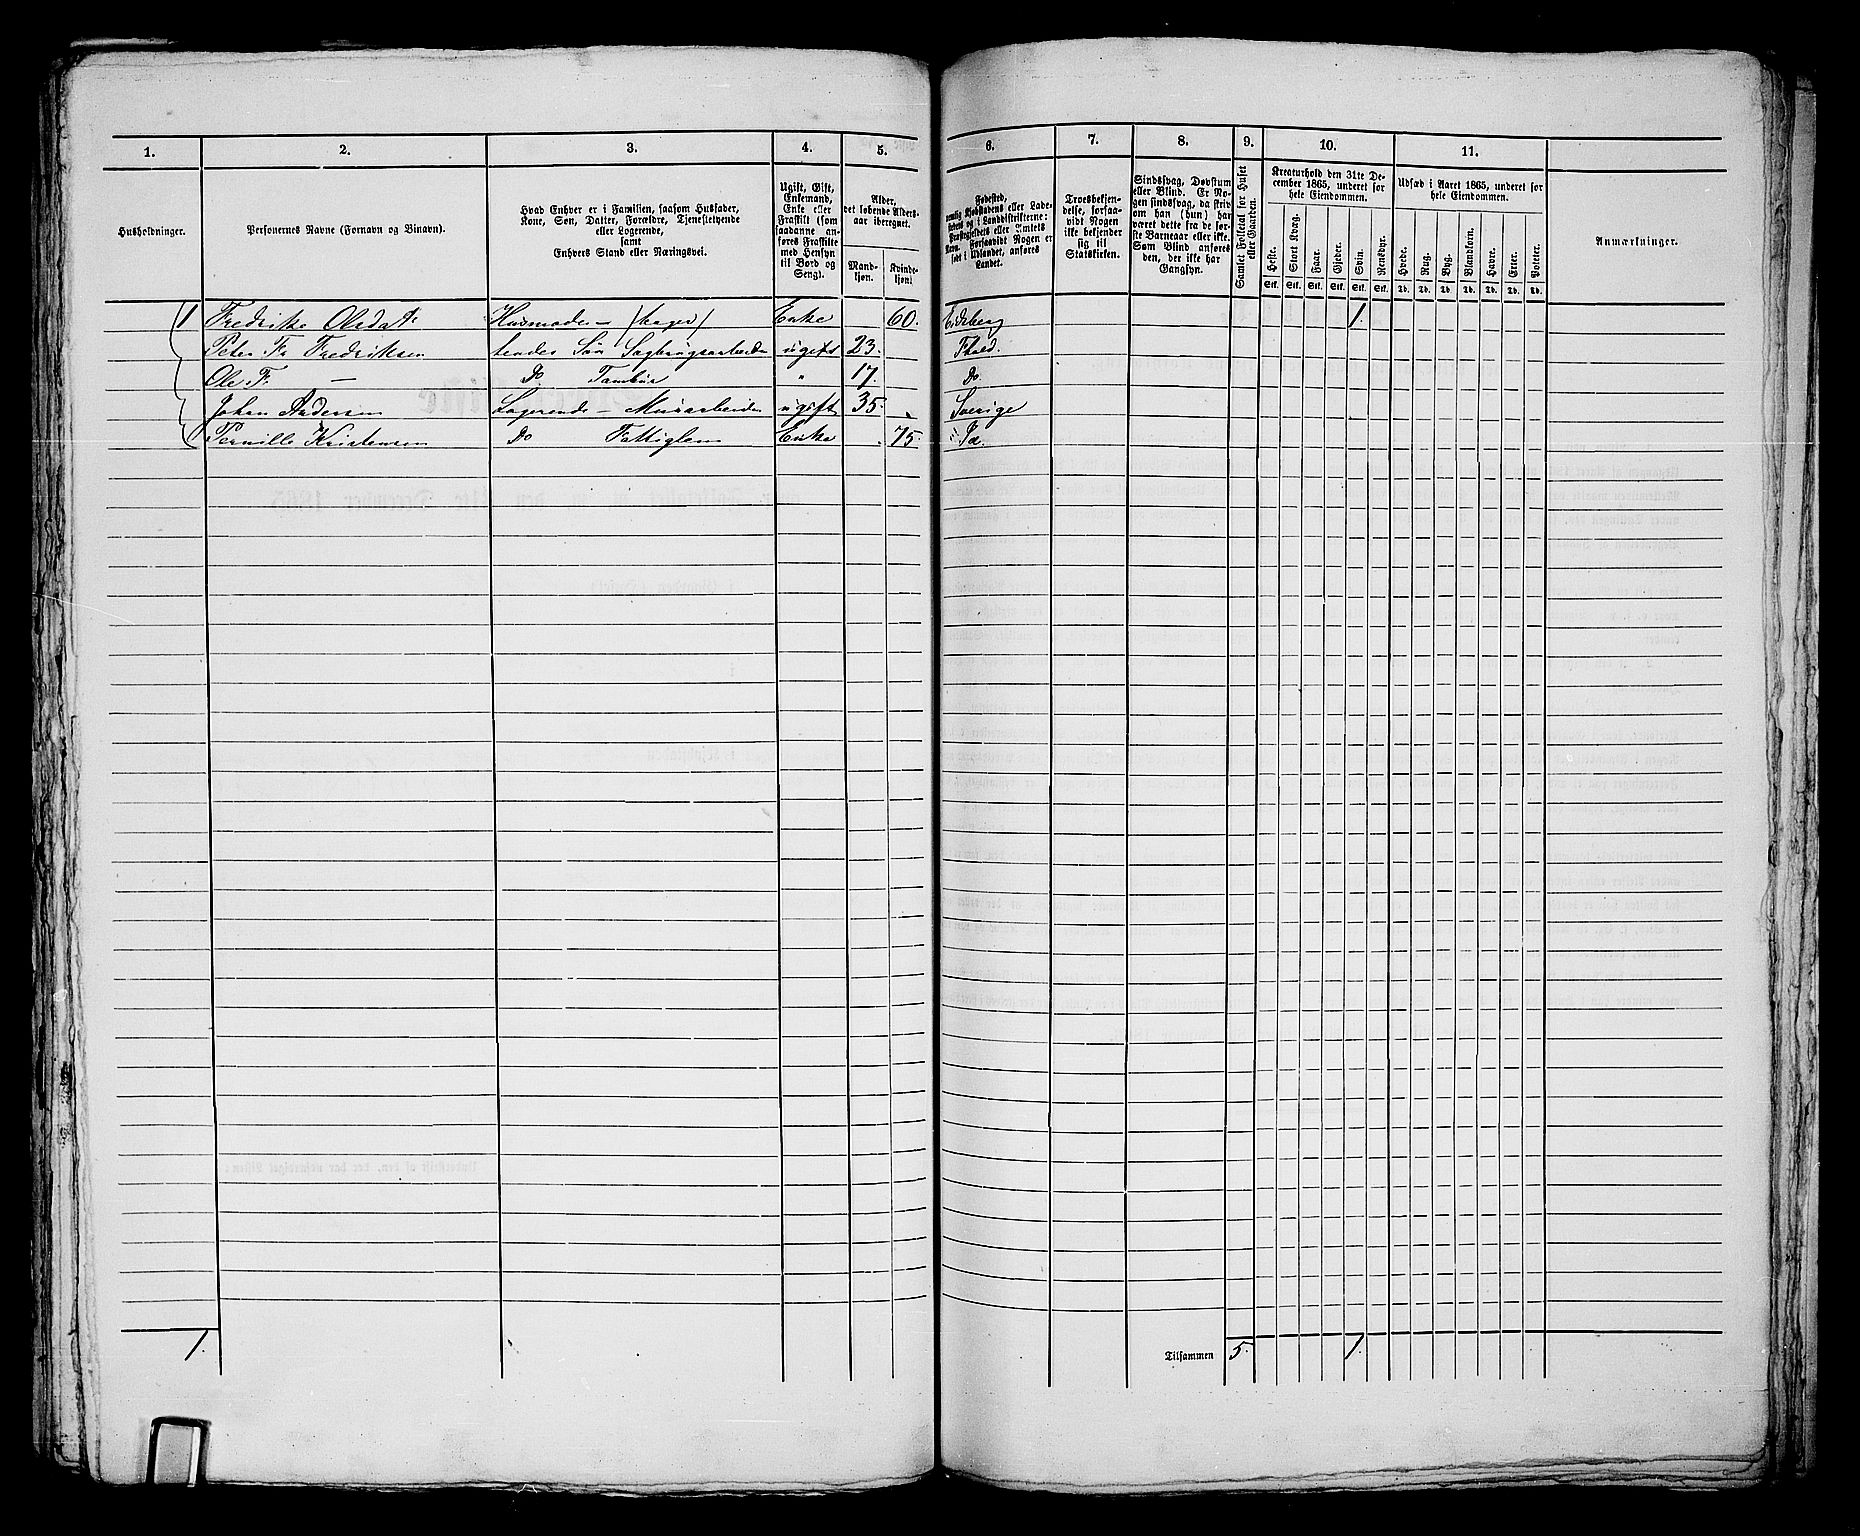 1. 2. 3. 4. 5. 6. 7. 8. 9. 10. 11.
Husholdninger.
Personernes Navne (Fornavn og Binavn).
Hvad Enhver er i Familien, saasom Husfader,
Kone, Søn, Datter, Forældre, Tjenestetyende
eller Logerende,
samt
Enhvers Stand eller Næringsvei.
Ugift, Gift,
Enkemand,
Enke eller
Fraskilt (som
saadanne an-
føres Fraskilte
med Hensyn
til Bord og
Seng).
Alder,
det løbende Alders-
aar iberegnet.
Mand-
kjøn.
Kvinde-
kjøn.
Fødested,
nemlig Kjøbstadens eller Lade-
stedets og i Landdistrikterne:
Præstegjeldets eller Amtets
Navn. Forsaavidt Nogen er
født i Udlandet, anføres
Landet.
Troesbekjen-
delse, forsaa-
vidt Nogen
ikke bekjender
sig til
Statskirken.
Sindssvag, Døvstum
eller Blind. Er No-
gen sindssvag, da skriv
om han (hun) har
været dette fra de før-
ste Barneaar eller ikke.
Som Blind anføres
den, der ikke har
Gangsyn.
Samlet Folketal for Huset
eller Gaarden.
Kreaturhold den 31te De-
cember 1865, underet for
hele Eiendommen.
Heste. Stort Kvæg. Faar. Gjeder. Svin. Rensdyr.
Stk. Stk. Stk. Stk. Stk. Stk.
Udsæd i Aaret 1865, underet for
hele Eiendommen.
Hvede. Rug. Byg. Blandkorn. Havre. Erter. Poteter.
Td. Td. Td. Td. Td. Td. Td.
Anmærkninger.
1 Fredrikke Olsdatr Husmoder – (bager) Enke 60. Eidsberg 1.
Peter Fr Fredriksen hendes Søn Sagbrugsarbeider ugift 23. Fhald.
Ole F. — Do Tambur " 17. Do
Johan Andersen Logerende – Murarbeider ugift 35. Sverige
Pernille Kristensen Do Fattiglem Enke 75.
1. Tilsammen 5. 1.